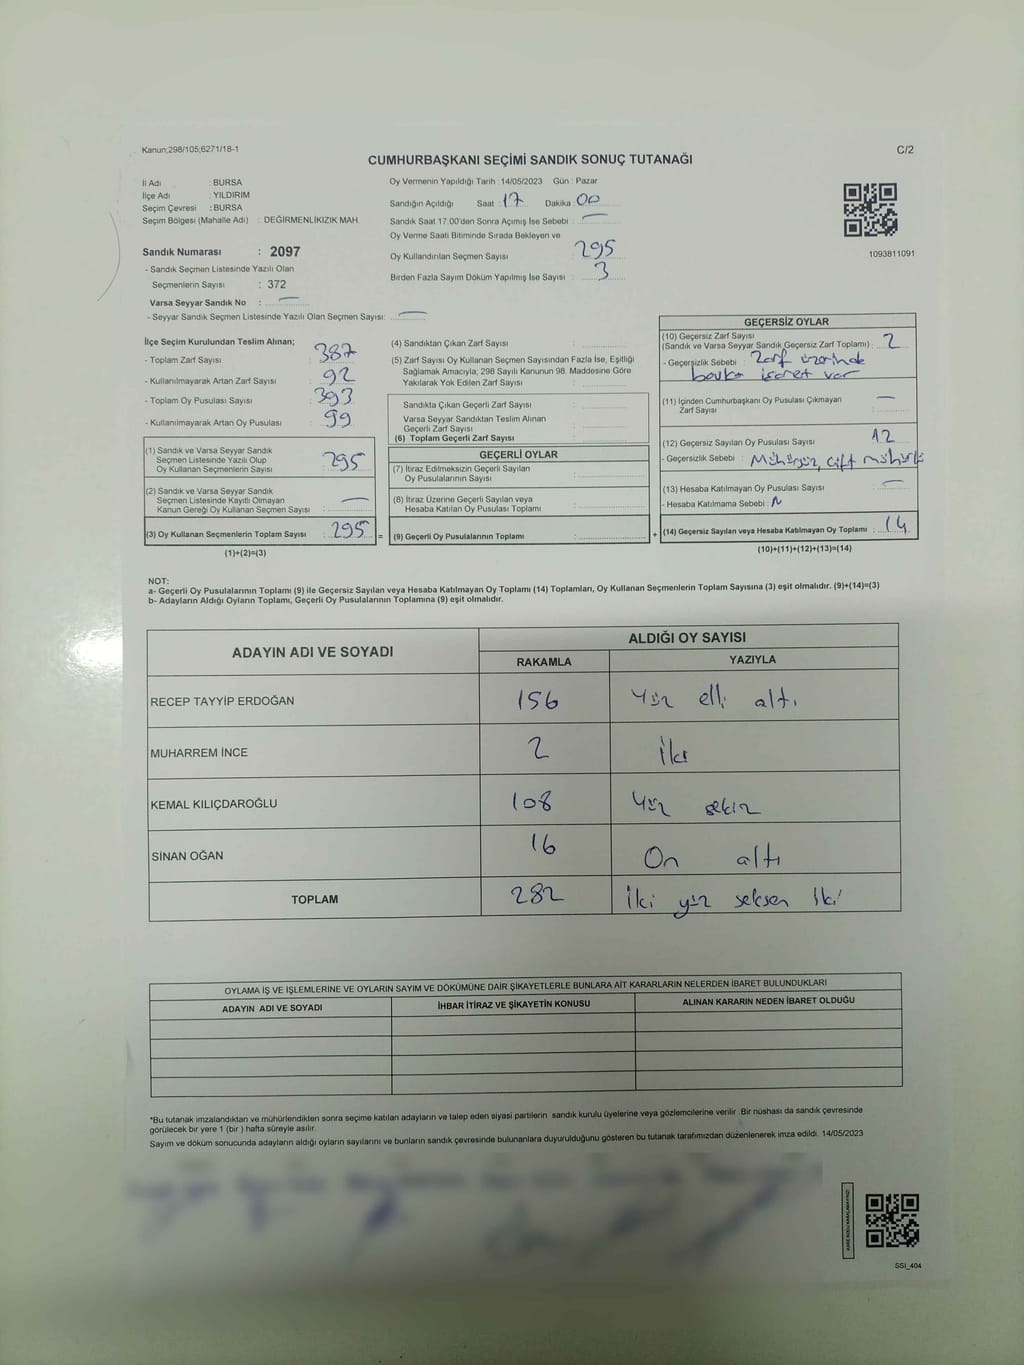 Kanun;298/105;6271/18-1
C/2
CUMHURBAŞKANI SEÇİMİ SANDIK SONUÇ TUTANAĞI
İl Adı : BURSA
İlçe Adı : YILDIRIM
Seçim Çevresi : BURSA
Seçim Bölgesi (Mahalle Adı) : DEĞİRMENLİKIZIK MAH.
Sandık Numarası : 2097
- Sandık Seçmen Listesinde Yazılı Olan
Seçmenlerin Sayısı : 372
Varsa Seyyar Sandık No : —
- Seyyar Sandık Seçmen Listesinde Yazılı Olan Seçmen Sayısı: —
Oy Vermenin Yapıldığı Tarih : 14/05/2023 Gün : Pazar
Sandığın Açıldığı Saat : 17 Dakika : 00
Sandık Saat 17.00'den Sonra Açımış İse Sebebi : —
Oy Verme Saati Bitiminde Sırada Bekleyen ve
Oy Kullandırılan Seçmen Sayısı : 295
Birden Fazla Sayım Döküm Yapılmış İse Sayısı : 3
1093811091
İlçe Seçim Kurulundan Teslim Alınan;
- Toplam Zarf Sayısı : 387
- Kullanılmayarak Artan Zarf Sayısı : 92
- Toplam Oy Pusulası Sayısı : 393
- Kullanılmayarak Artan Oy Pusulası : 99
(1) Sandık ve Varsa Seyyar Sandık
Seçmen Listesinde Yazılı Olup
Oy Kullanan Seçmenlerin Sayısı : 295
(2) Sandık ve Varsa Seyyar Sandık
Seçmen Listesinde Kayıtlı Olmayan
Kanun Gereği Oy Kullanan Seçmen Sayısı : —
(3) Oy Kullanan Seçmenlerin Toplam Sayısı : 295 =
(1)+(2)=(3)
(4) Sandıktan Çıkan Zarf Sayısı :
(5) Zarf Sayısı Oy Kullanan Seçmen Sayısından Fazla İse, Eşitliği
Sağlamak Amacıyla; 298 Sayılı Kanunun 98. Maddesine Göre
Yakılarak Yok Edilen Zarf Sayısı :
Sandıkta Çıkan Geçerli Zarf Sayısı :
Varsa Seyyar Sandıktan Teslim Alınan
Geçerli Zarf Sayısı :
(6) Toplam Geçerli Zarf Sayısı :
GEÇERLİ OYLAR
(7) İtiraz Edilmeksizin Geçerli Sayılan
Oy Pusulalarının Sayısı :
(8) İtiraz Üzerine Geçerli Sayılan veya
Hesaba Katılan Oy Pusulası Toplamı :
(9) Geçerli Oy Pusulalarının Toplamı : +
GEÇERSİZ OYLAR
(10) Geçersiz Zarf Sayısı
(Sandık ve Varsa Seyyar Sandık Geçersiz Zarf Toplamı) : 2
- Geçersizlik Sebebi : Zarf üzerinde
işaret var
(11) İçinden Cumhurbaşkanı Oy Pusulası Çıkmayan
Zarf Sayısı : —
(12) Geçersiz Sayılan Oy Pusulası Sayısı : 12
- Geçersizlik Sebebi : Mühürsüz, çift mühürlü
(13) Hesaba Katılmayan Oy Pusulası Sayısı : —
- Hesaba Katılmama Sebebi :
(14) Geçersiz Sayılan veya Hesaba Katılmayan Oy Toplamı : 14
(10)+(11)+(12)+(13)=(14)
NOT:
a- Geçerli Oy Pusulalarının Toplamı (9) ile Geçersiz Sayılan veya Hesaba Katılmayan Oy Toplamı (14) Toplamları, Oy Kullanan Seçmenlerin Toplam Sayısına (3) eşit olmalıdır. (9)+(14)=(3)
b- Adayların Aldığı Oyların Toplamı, Geçerli Oy Pusulalarının Toplamına (9) eşit olmalıdır.
ADAYIN ADI VE SOYADI
ALDIĞI OY SAYISI
RAKAMLA YAZIYLA
RECEP TAYYİP ERDOĞAN 156 Yüz elli altı
MUHARREM İNCE 2 İki
KEMAL KILIÇDAROĞLU 108 Yüz sekiz
SİNAN OĞAN 16 On altı
TOPLAM 282 İki yüz seksen iki
OYLAMA İŞ VE İŞLEMLERİNE VE OYLARIN SAYIM VE DÖKÜMÜNE DAİR ŞİKAYETLERLE BUNLARA AİT KARARLARIN NELERDEN İBARET BULUNDUKLARI
ADAYIN ADI VE SOYADI İHBAR İTİRAZ VE ŞİKAYETİN KONUSU ALINAN KARARIN NEDEN İBARET OLDUĞU
*Bu tutanak imzalandıktan ve mühürlendikten sonra seçime katılan adayların ve talep eden siyasi partilerin sandık kurulu üyelerine veya gözlemcilerine verilir. Bir nüshası da sandık çevresinde
görülecek bir yere 1 (bir ) hafta süreyle asılır.
Sayım ve döküm sonucunda adayların aldığı oyların sayılarını ve bunların sandık çevresinde bulunanlara duyurulduğunu gösteren bu tutanak tarafımızdan düzenlenerek imza edildi. 14/05/2023
SSI_404